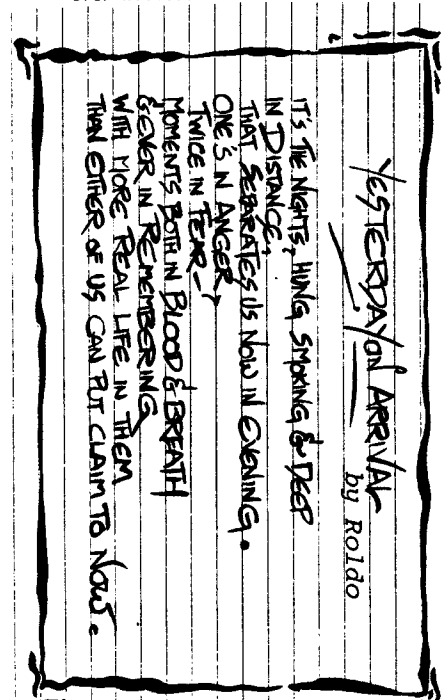 YESTERDAY ON ARRIVAL
by Roldo
IT'S THE NIGHTS, HUNG SMOKING & DEEP
IN DISTANCE,
THAT SEPARATES US NOW IN EVENING.
ONE'S IN ANGER,
TWICE IN FEAR—
MOMENTS BOTH IN BLOOD & BREATH
& EVER IN REMEMBERING
WITH MORE REAL LIFE IN THEM
THAN EITHER OF US CAN PUT CLAIM TO NOW.